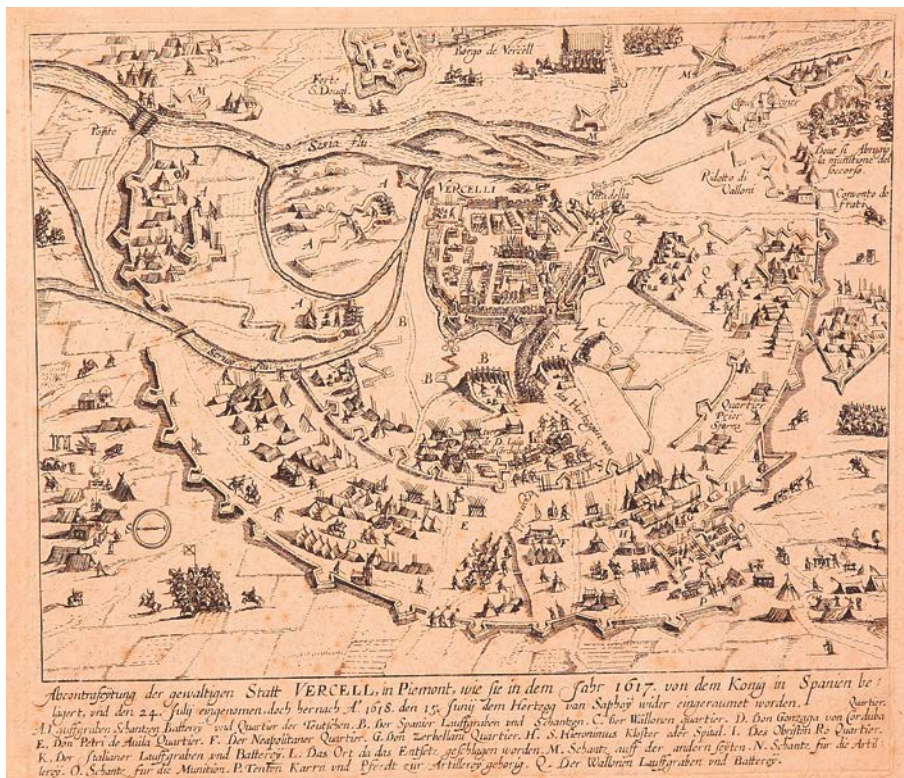 Borgo de Vercell
Forte
S. Dougl.
M
M
L
Ponte
Sesia flu
A
VERCELLI
Cittadella
Ridotto di
Valloni
Doue si Abrugio
la munitione del
soccorso.
Conuento de
frati
A
A
A
Q
B
B
B
K
K
Quartier
B
E
D
F
H
G
S
P
Abcontrafeytung der gewaltigen Statt VERCELL, in Piemont, wie sie in dem Jahr 1617. von dem Konig in Spanien be:
lägert, vnd den 24. July eingenomen, doch hernach Aº. 1618. den 15. Junij dem Hertzog van Saphoy wider eingeraumet worden.
Quartier.
A. Lauffgraben Schantzen Batterey vnd Quartier der Teutschen. B. Der Spanier Lauffgraben vnd Schantzen. C. der Wallonen quartier. D. Don Gonzaga von Corduba
E. Don Petri de Auila Quartier. F. Der Neapolitaner Quartier. G. Don Zerbellani Quartier. H. S. Hieronimus Kloster oder Spital. I. Des Obristen Ro Quartier.
K. Der Italianer Lauffgraben vnd Batterey. L. Das Ort da das Entsetz geschlagen worden. M. Schantz auff der andern seyten. N. Schantz für die Artil
lerey. O. Schantz für die Munition. P. Tenten Karrn vnd Pferdt zur Artillerey gehorig. Q. Der Wallonen Lauffgraben vnd Batterey.